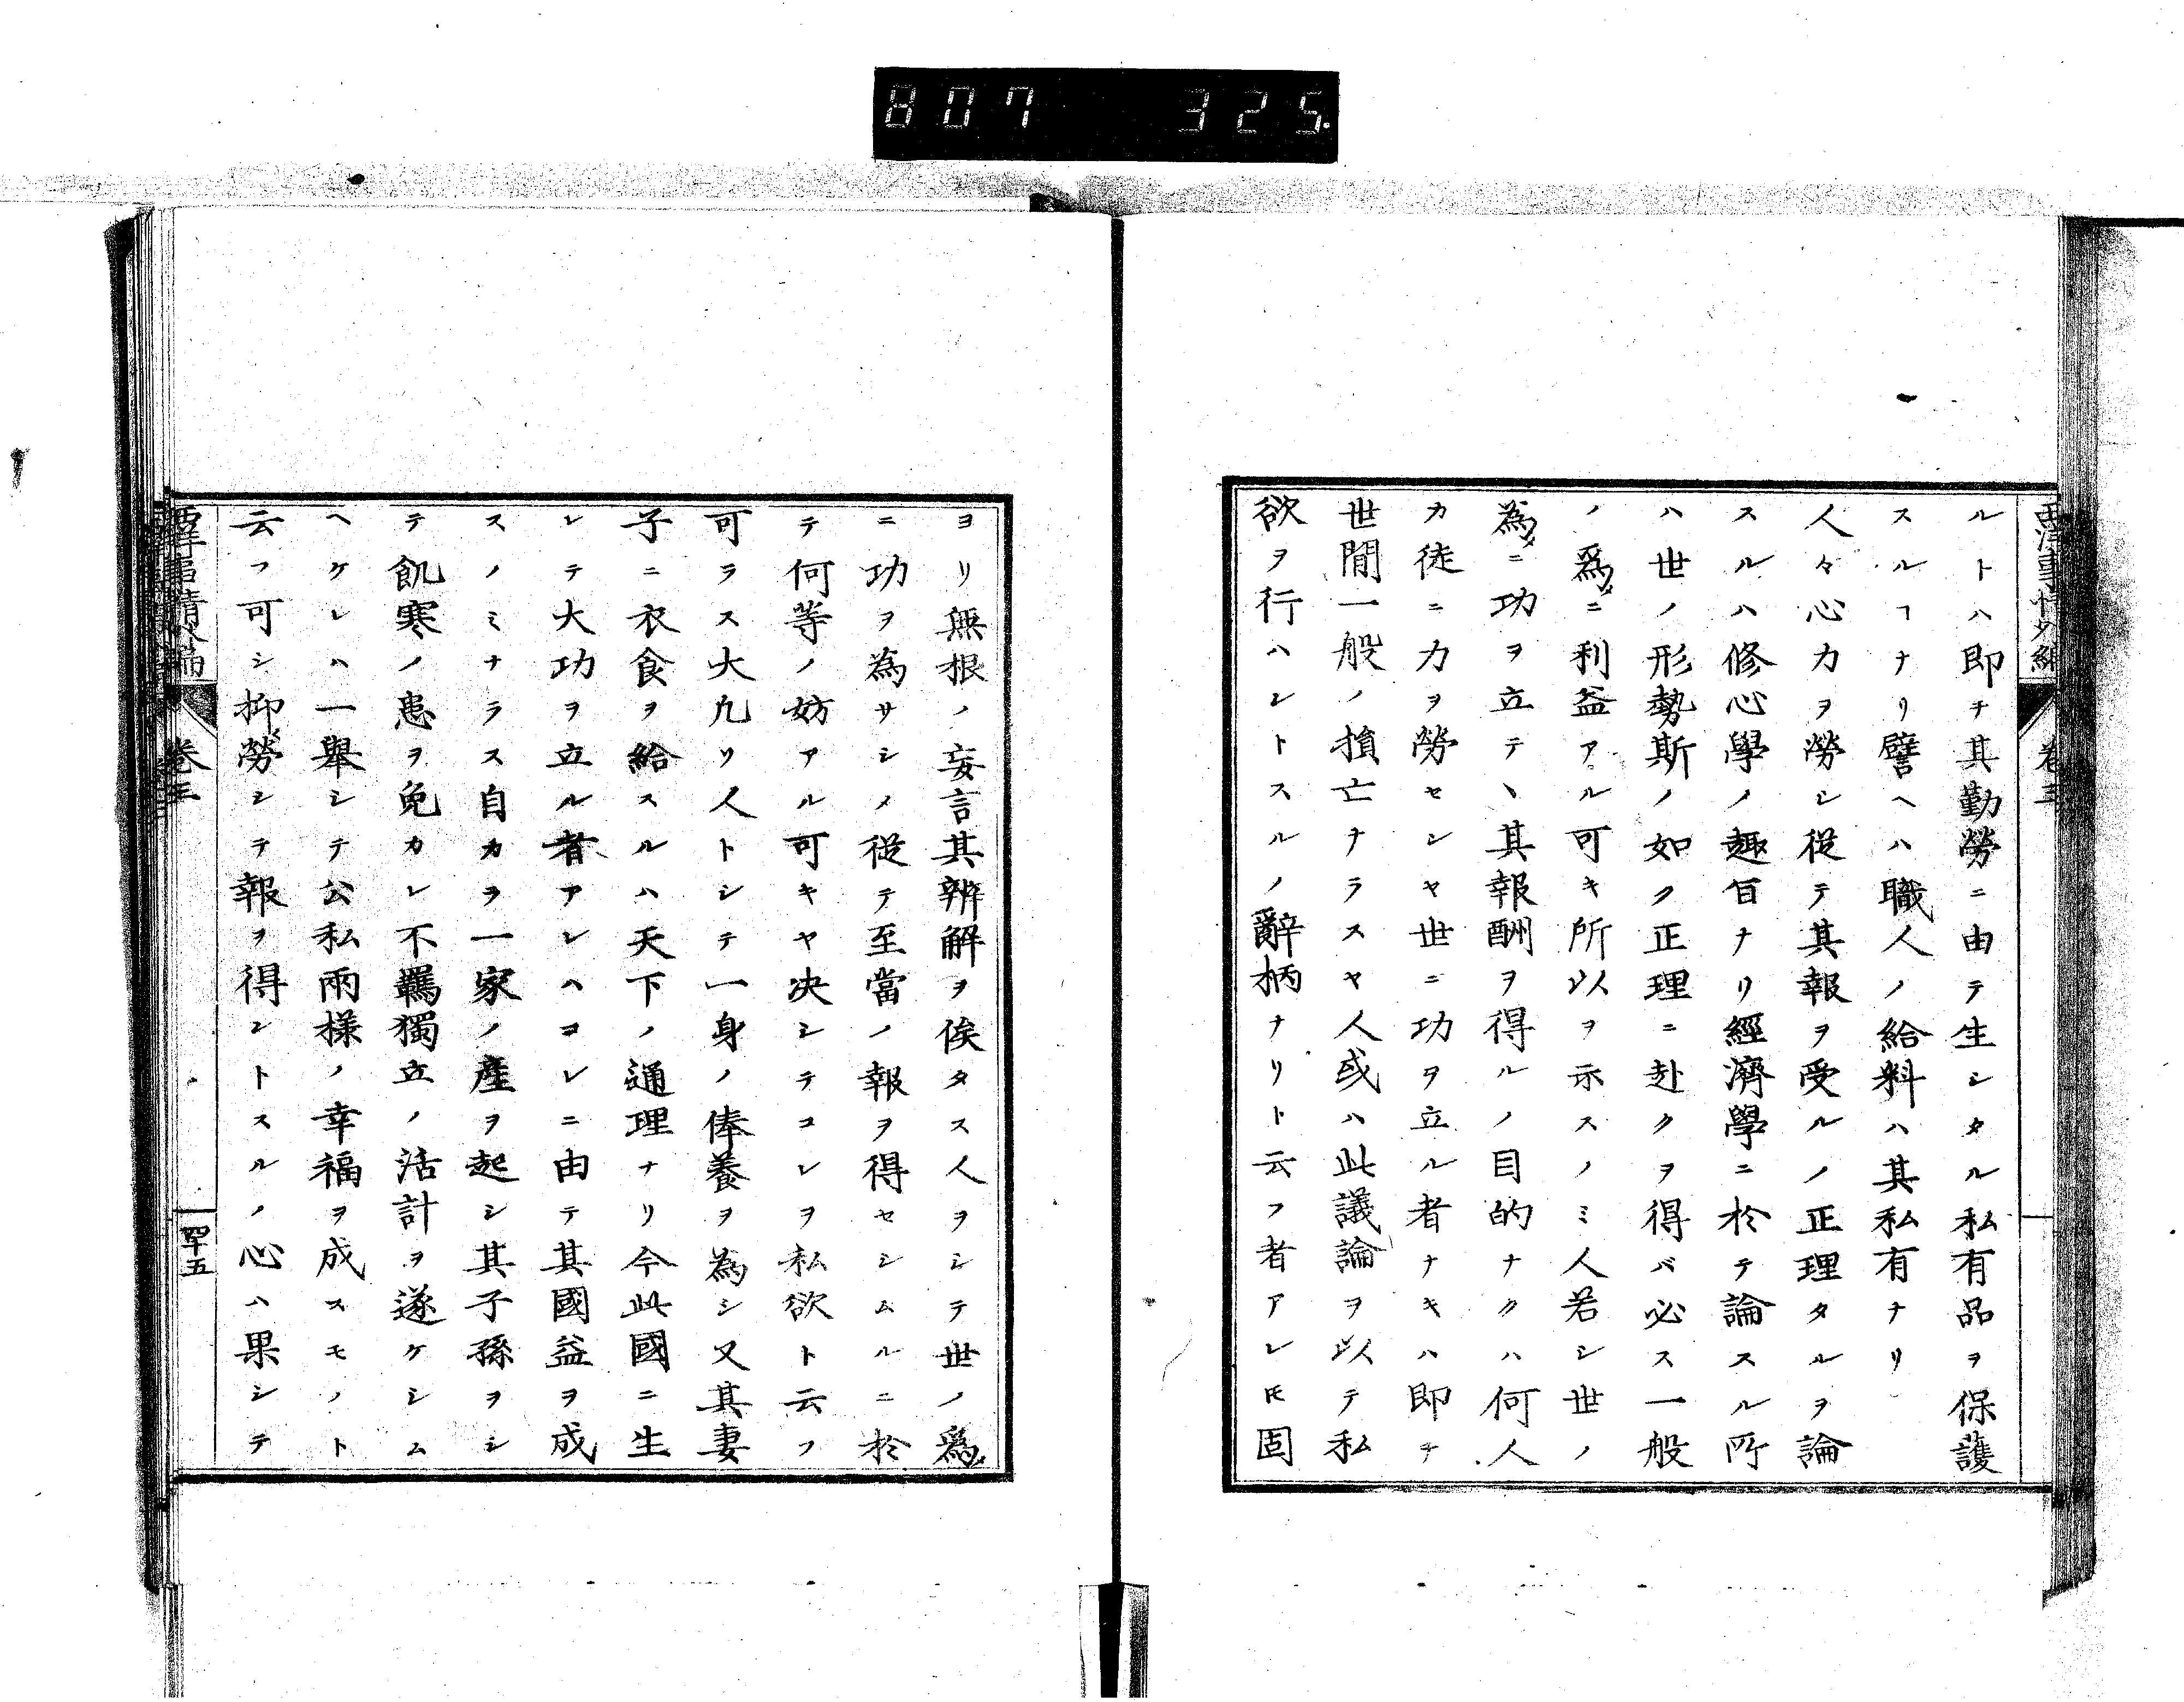 807 325
西洋事情外編 卷三
ルトハ即チ其勤勞ニ由テ生シタル私有品ヲ保護
スルヿナリ譬ヘハ職人ノ給料ハ其私有ナリ
人々心力ヲ勞シ從テ其報ヲ受ルノ正理タルヲ論
スルハ修心學ノ趣旨ナリ經濟學ニ於テ論スル所
ハ世ノ形勢斯ノ如ク正理ニ赴クヲ得バ必ス一般
ノ爲メニ利益アル可キ所以ヲ示スノミ人若シ世ノ
為メニ功ヲ立テヽ其報酬ヲ得ルノ目的ナクハ何人
カ徒ニ力ヲ勞センヤ世ニ功ヲ立ル者ナキハ即チ
世間一般ノ損亡ナラスヤ人或ハ此議論ヲ以テ私
欲ヲ行ハントスルノ辭柄ナリト云フ者アレ𪜈固
ヨリ無根ノ妄言其辨解ヲ俟タス人ヲシテ世ノ爲メ
ニ功ヲ為サシメ從テ至當ノ報ヲ得セシムルニ於
テ何等ノ妨アル可キヤ决シテコレヲ私欲ト云フ
可ラス大凡リ人トシテ一身ノ俸養ヲ為シ又其妻
子ニ衣食ヲ給スルハ天下ノ通理ナリ今此國ニ生
レテ大功ヲ立ル者アレハコレニ由テ其國益ヲ成
スノミナラス自カヲ一家ノ産ヲ起シ其子孫ヲシ
テ飢寒ノ患ヲ免カレ不羈獨立ノ活計ヲ遂ケシム
ヘケレハ一舉シテ公私兩様ノ幸福ヲ成スモノト
云フ可シ抑〻勞シテ報ヲ得ントスルノ心ハ果シテ
西洋事情外編 卷三 四十五